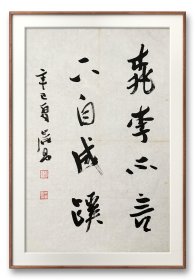 桃李不言
下自成蹊
辛巳夏